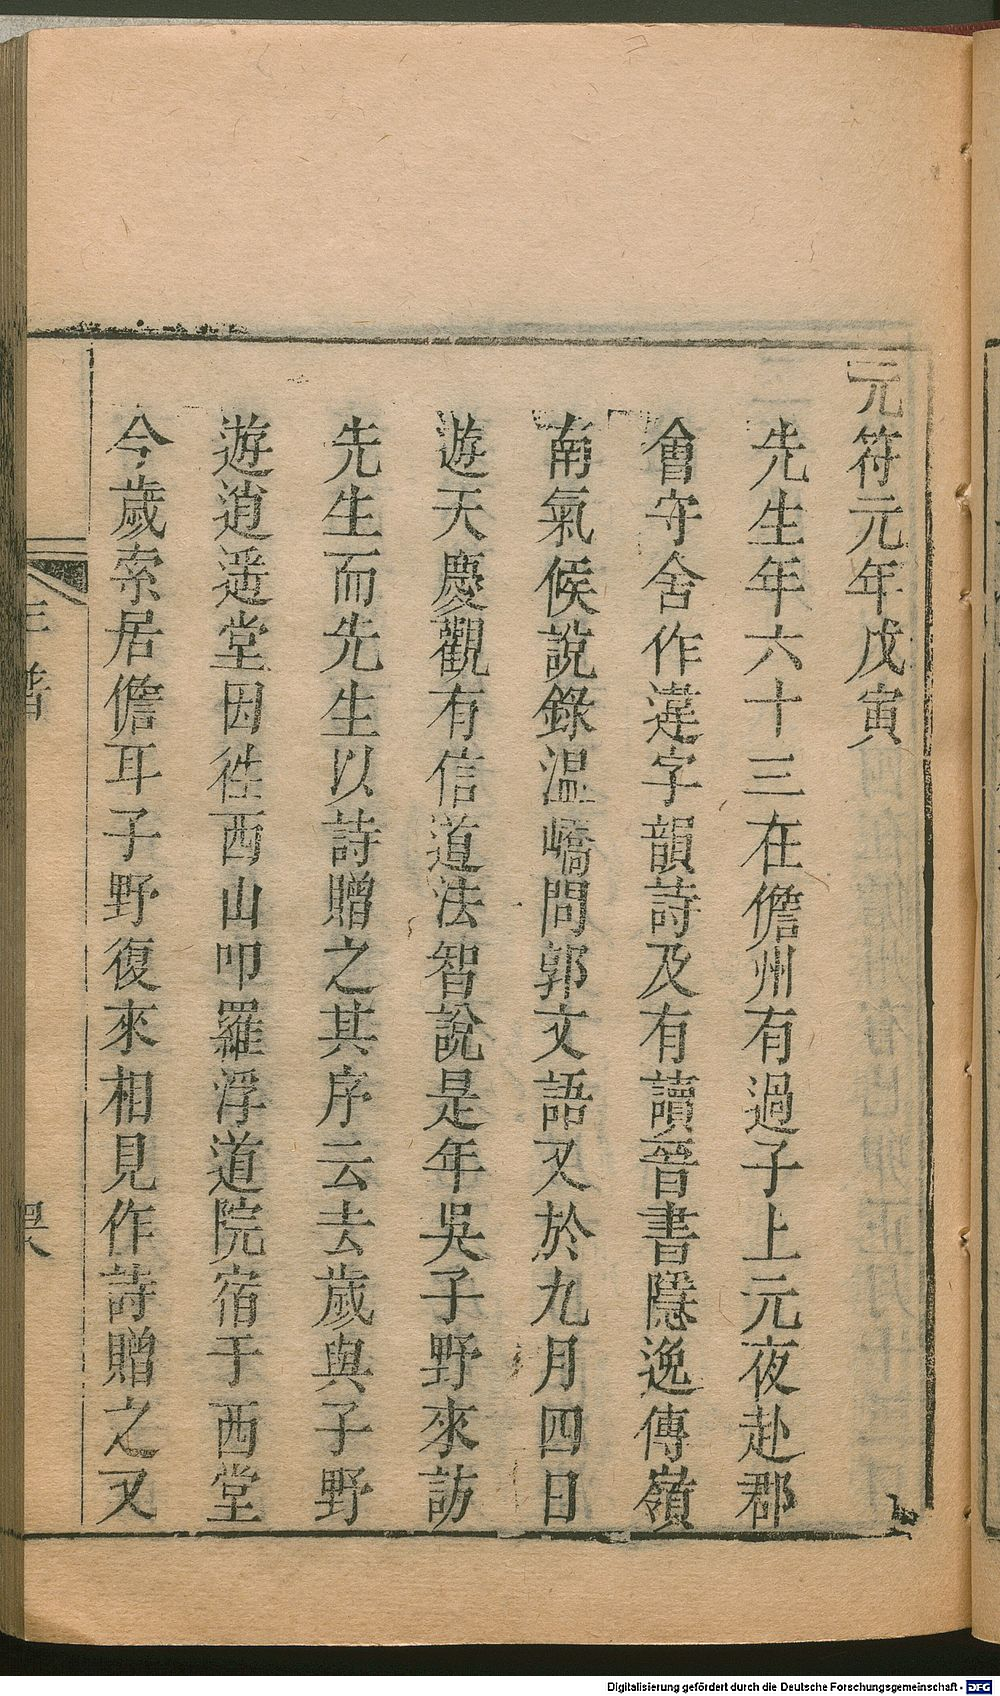 元符元年戊寅
先生年六十三在儋州有過子上元夜赴郡
會守舍作違字韻詩及有讀晉書隱逸傳嶺
南氣候說錄溫嶠問郭文語又於九月四日
遊天慶觀有信道法智說是年吳子野來訪
先生而先生以詩贈之其序云去歲與子野
遊逍遥堂因徃西山叩羅浮道院宿于西堂
今歲索居儋耳子野復來相見作詩贈之又
年譜
Digitalisierung gefördert durch die Deutsche Forschungsgemeinschaft - DFG